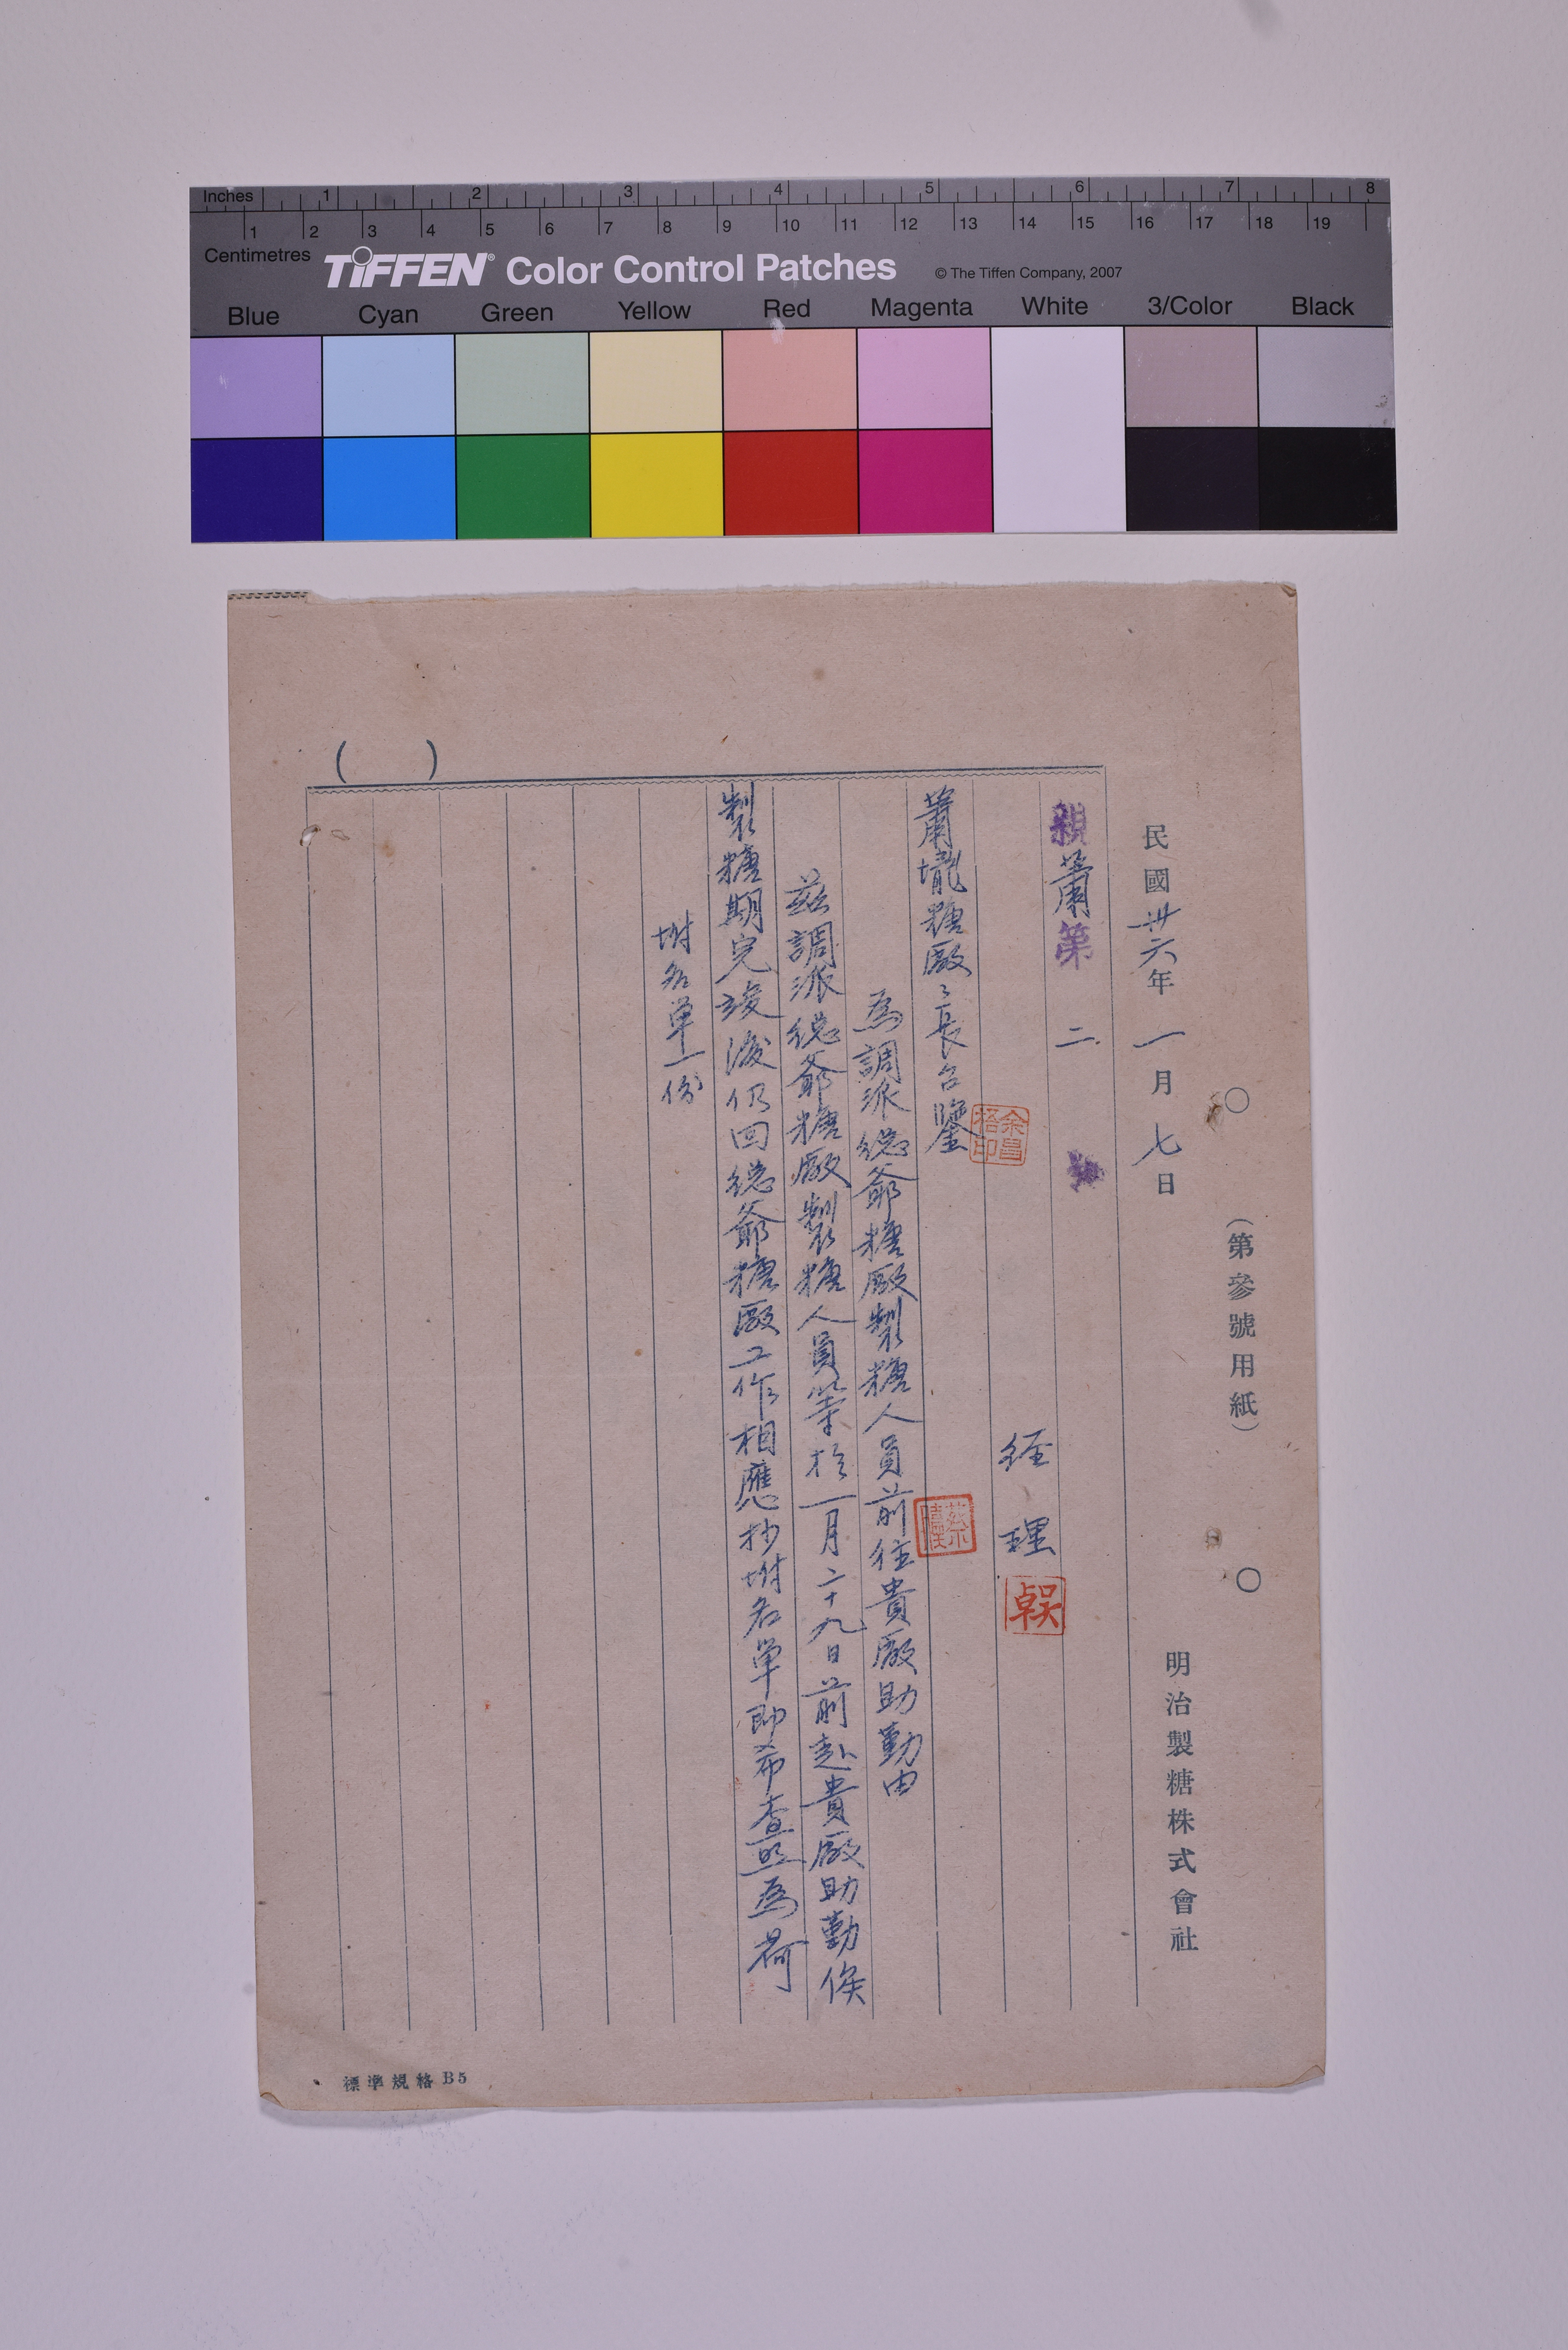 Inches 1 2 3 4 5 6 7 8
1 2 3 4 5 6 7 8 9 10 11 12 13 14 15 16 17 18 19
Centimetres
TIFFEN® Color Control Patches © The Tiffen Company, 2007
Blue Cyan Green Yellow Red Magenta White 3/Color Black
(第參號用紙)
民國卅六年一月七日 明治製糖株式會社
親蕭第二號
經理 吳卓
余昌梧印
蕭壠糖廠々長台鑒
為調派總爺糖廠製糖人員前往貴廠助勤由
茲調派總爺糖廠製糖人員等於一月二十九日前赴貴廠助勤俟
製糖期完竣後仍回總爺糖廠工作相應抄附名單即希查照為荷
附名單一份
( )
標準規格B5